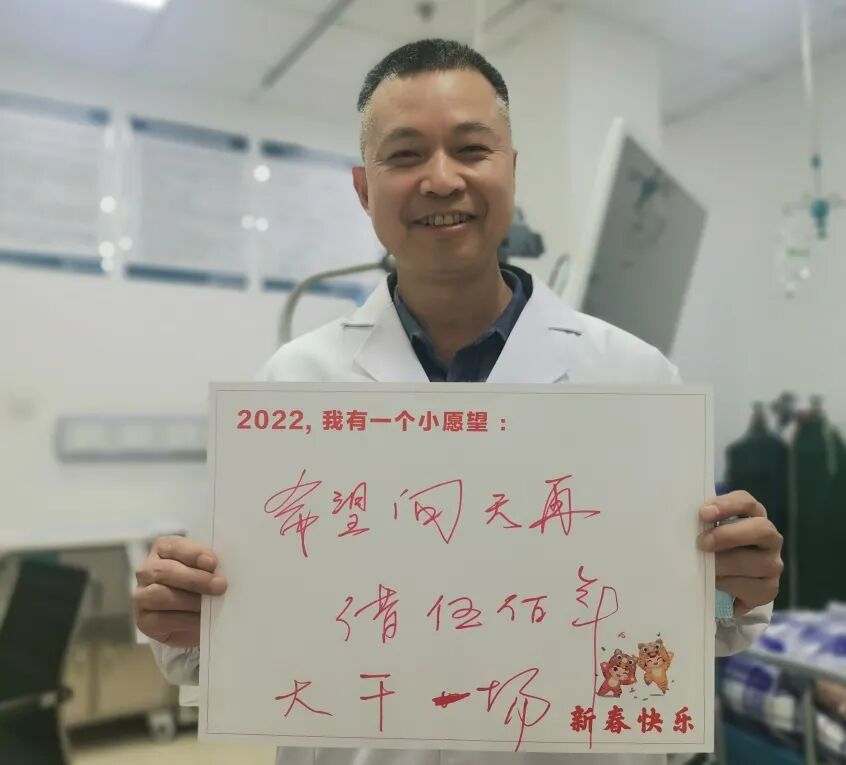 2022, 我有一个小愿望：
希望问天再
借伍佰年
大干一场
新春快乐